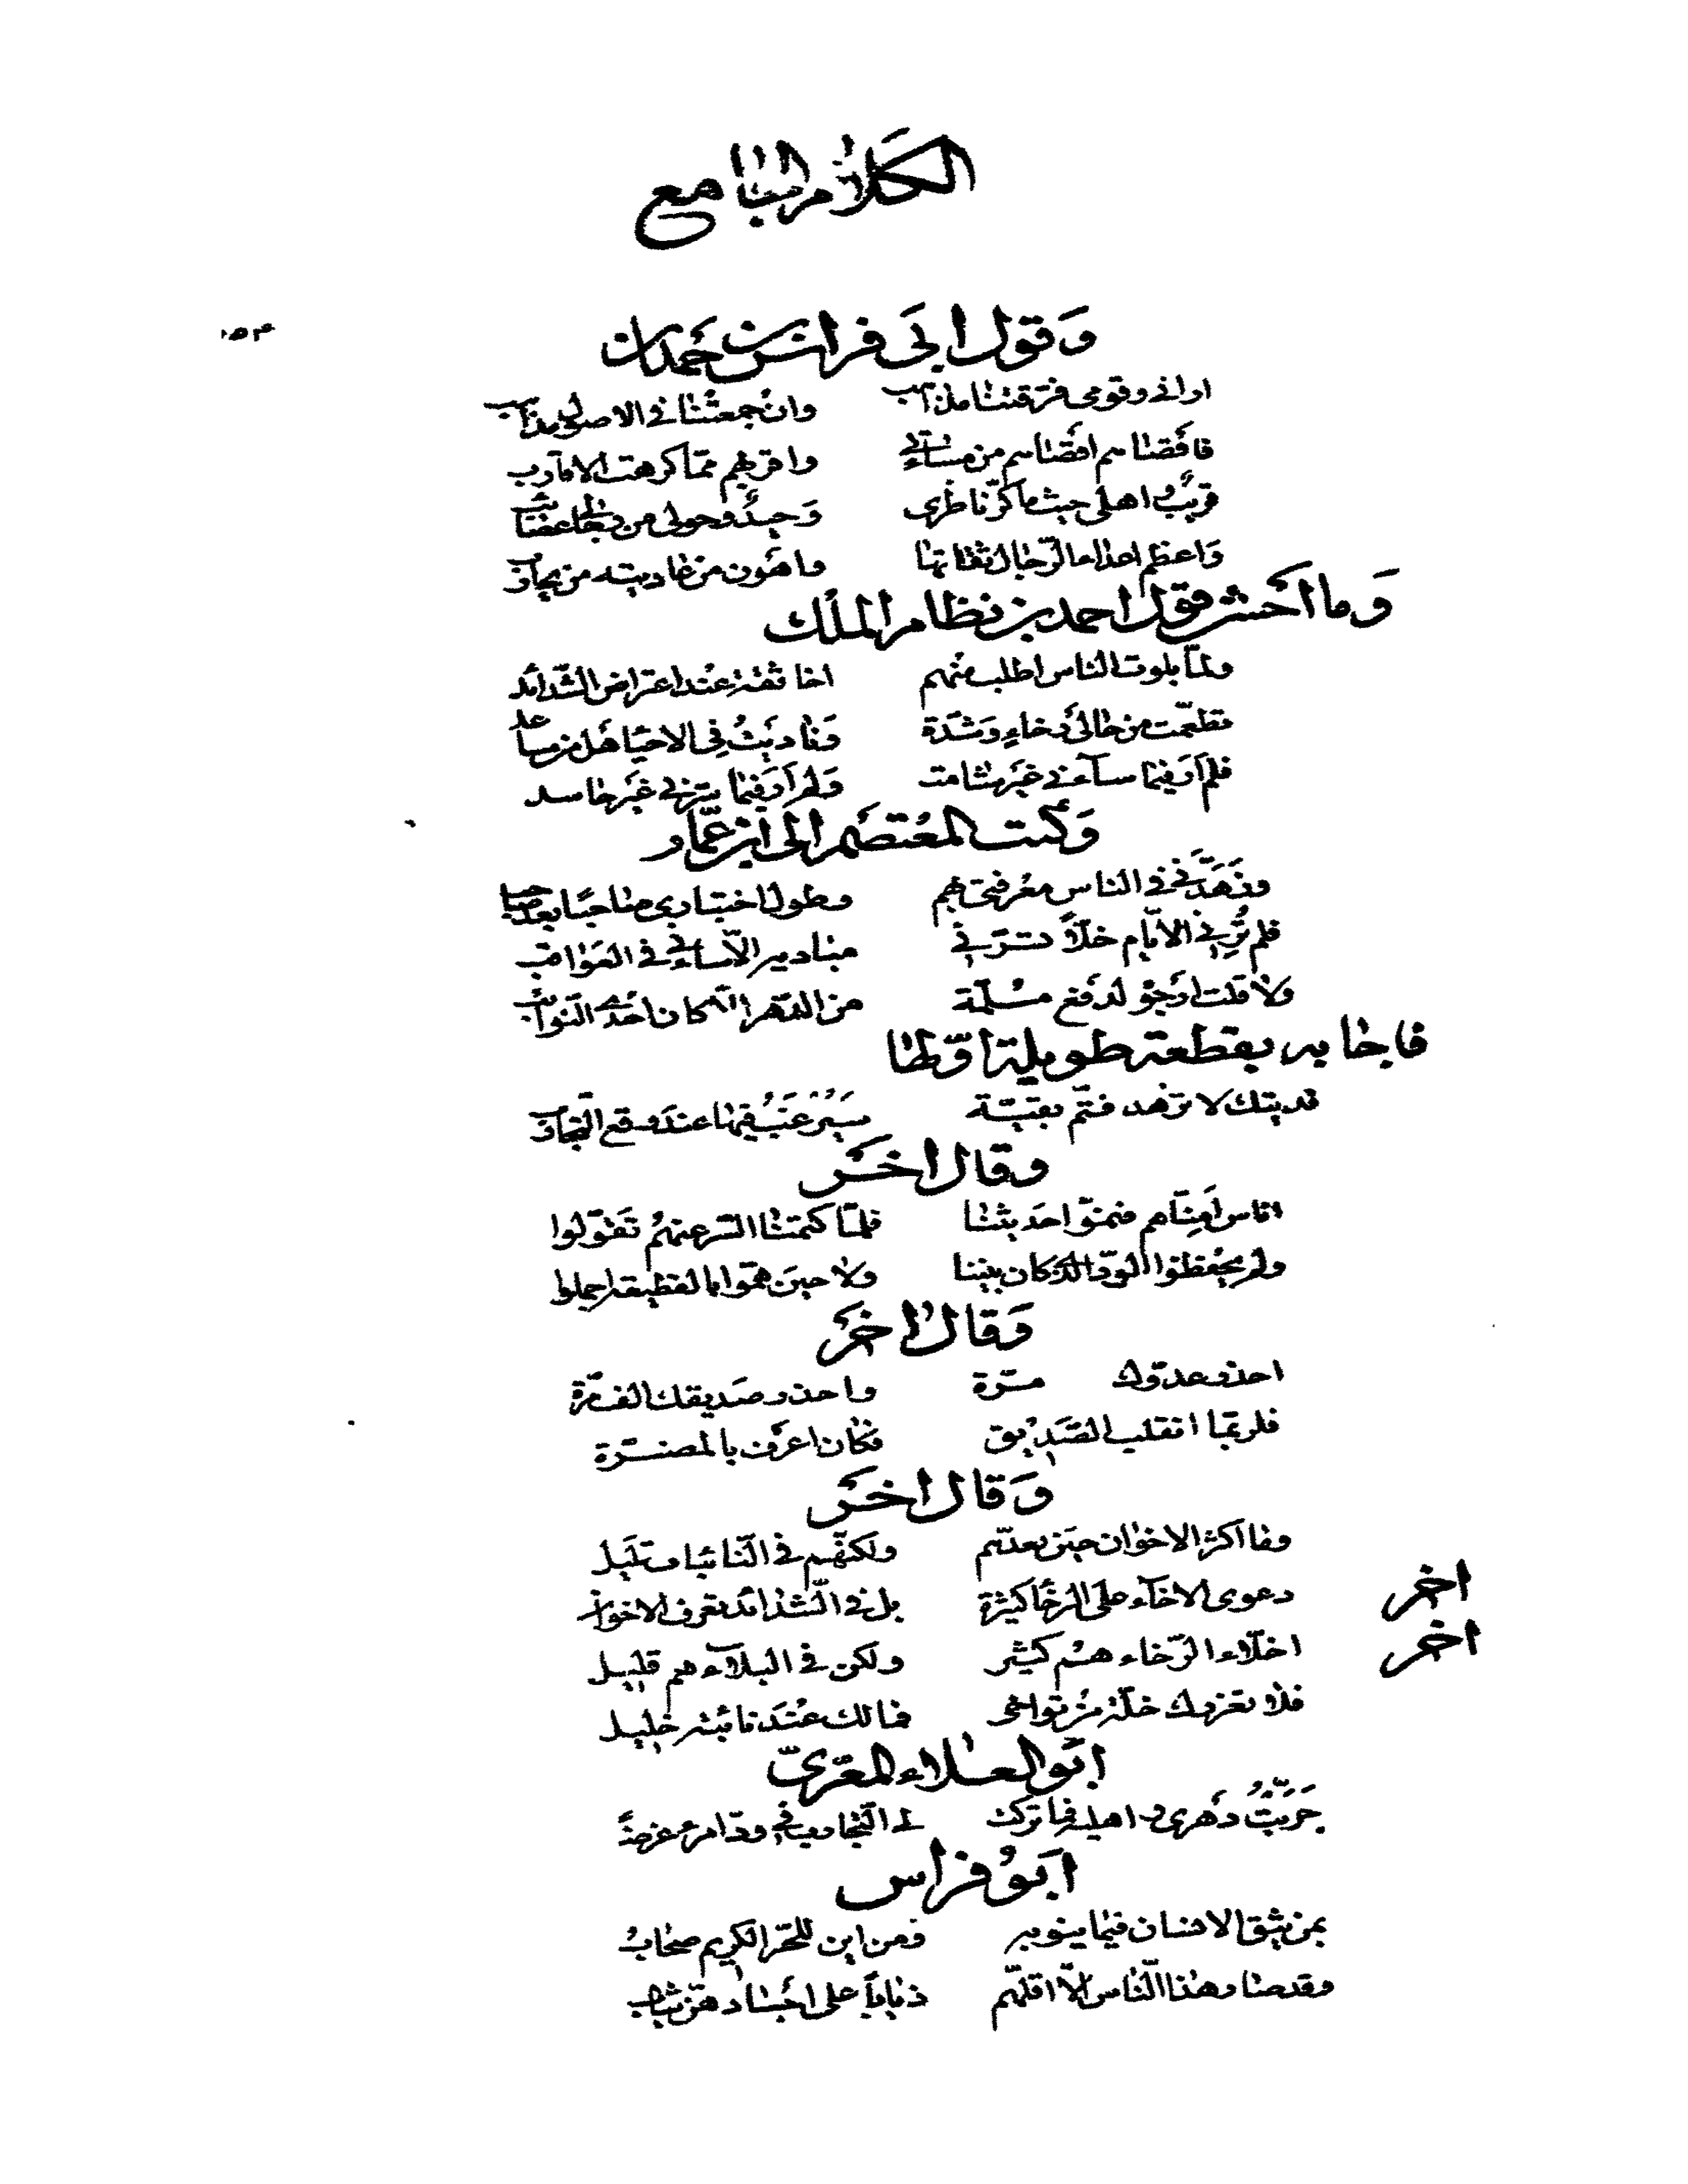 الكلام الجامع
وقول ابى فراس بن حمدان
ارانى وقومى فرقتنا مذاهب وان جمعتنا فى الاصول مذاهب
فاقصاهم اقصاهم من مساءتى واقربهم مما كرهت الاقارب
قريب واهلى حيث ما كر ناظرى وحيد وحولى من رجالى عصائب
واعظم اعداء الرجال ثقاتها واهون من عاديته من يحارب
وما احسن قول احمد بن نظام الملك
ولما بلوت الناس اطلب منهم اخا ثقة عند اعتراض الشدائد
تطعمت من حالى رخاء وشدة وناديت فى الاحيا هل من مساعد
فلم ار فيما ساءنى غير شامت ولم ار فيما سرنى غير حاسد
وكتب المعتصم الى ابن عمار
وزهدنى فى الناس معرفتى بهم وطول اختبارى صاحبا بعد صاحب
فلم ترنى الايام خلا تسرنى مباديه الا ساءنى فى العواقب
ولا قلت ارجو لدفع ملمة من الدهر الا كان احدى النوائب
فاجابه بقطعة طويلة اولها
فديتك لا تزهد فثم بقية سيرغب فيها عند وقع التجارب
وقال اخر
اناس امناهم فنموا حديثنا فلما كتمنا السر عنهم تقولوا
ولم يحفظوا الود الذى كان بيننا ولا حين هموا بالقطيعة اجملوا
وقال اخر
احذر عدوك مرة واحذر صديقك الف مرة
فلربما انقلب الصديق فكان اعرف بالمضرة
وقال اخر
وما اكثر الاخوان حين تعدهم ولكنهم فى النائبات قليل
اخر دعوى الاخاء على الرخا كثيرة بل فى الشدائد تعرف الاخوان
اخر اخلاء الرخاء هم كثير ولكن فى البلاء هم قليل
فلا تغررك خلة من تواخى فما لك عند نائبة خليل
ابو العلاء المعرى
جربت دهرى واهليه فما تركت لى التجارب فى ود امرء غرضا
ابو فراس
بمن يثق الانسان فيما ينوبه ومن اين للحر الكريم صحاب
وقد صار هذا الناس الا اقلهم ذئابا على اجسادهن ثياب